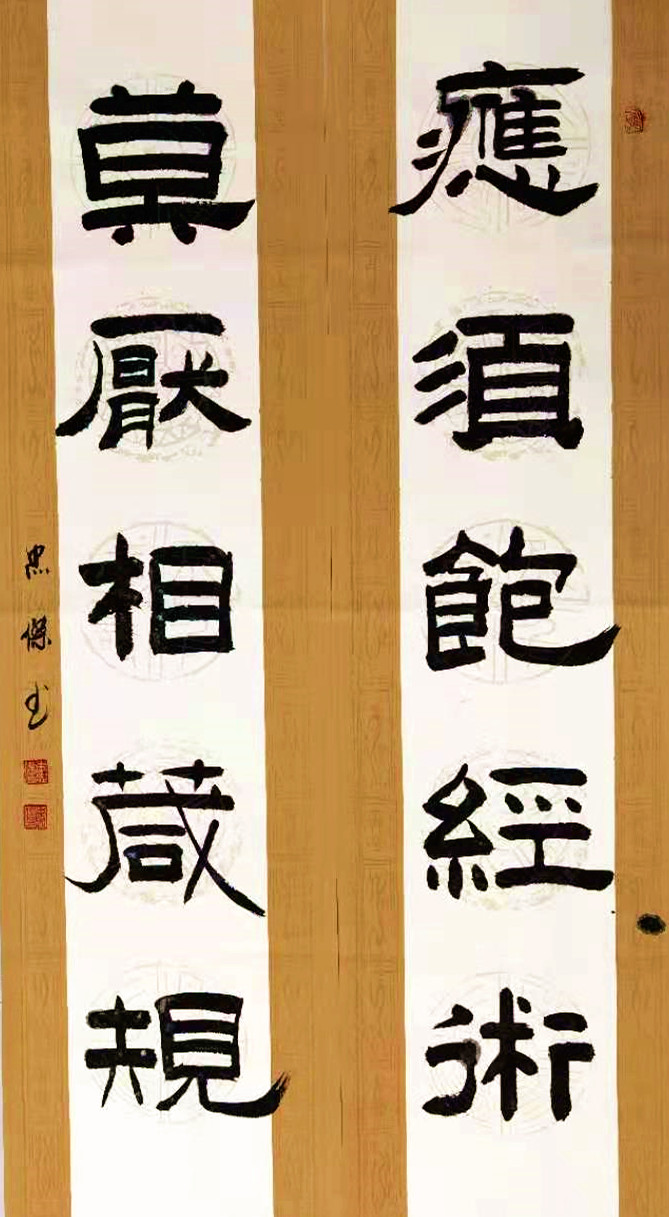 應須飽經術
莫厭相葴規
忠傑书